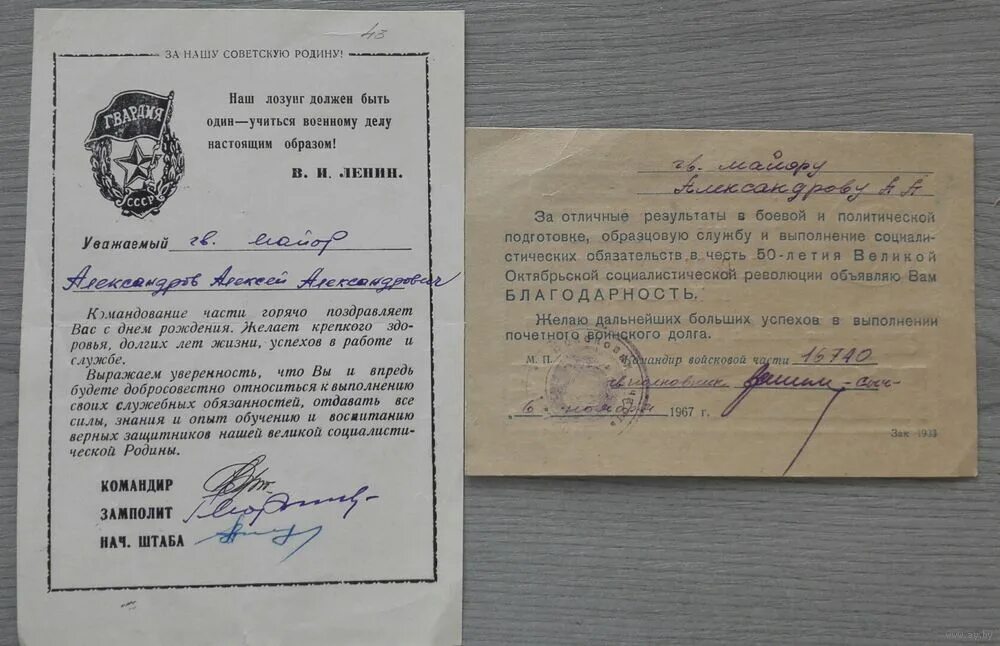 43
ЗА НАШУ СОВЕТСКУЮ РОДИНУ!
ГВАРДИЯ
СССР
Наш лозунг должен быть
один—учиться военному делу
настоящим образом!
В. И. ЛЕНИН.
Уважаемый гв. майор
Александров Алексей Александрович
Командование части горячо поздравляет
Вас с днем рождения. Желает крепкого здо-
ровья, долгих лет жизни, успехов в работе и
службе.
Выражаем уверенность, что Вы и впредь
будете добросовестно относиться к выполнению
своих служебных обязанностей, отдавать все
силы, знания и опыт обучению и воспитанию
верных защитников нашей великой социалисти-
ческой Родины.
КОМАНДИР
ЗАМПОЛИТ
НАЧ. ШТАБА
гв. майору
Александрову А А
За отличные результаты в боевой и политической
подготовке, образцовую службу и выполнение социали-
стических обязательств в честь 50-летия Великой
Октябрьской социалистической революции объявляю Вам
БЛАГОДАРНОСТЬ.
Желаю дальнейших больших успехов в выполнении
почетного воинского долга.
М. П. Командир войсковой части 16740
гв. полковник
6 ноября 1967 г.
Зак 1933
www.ay.by